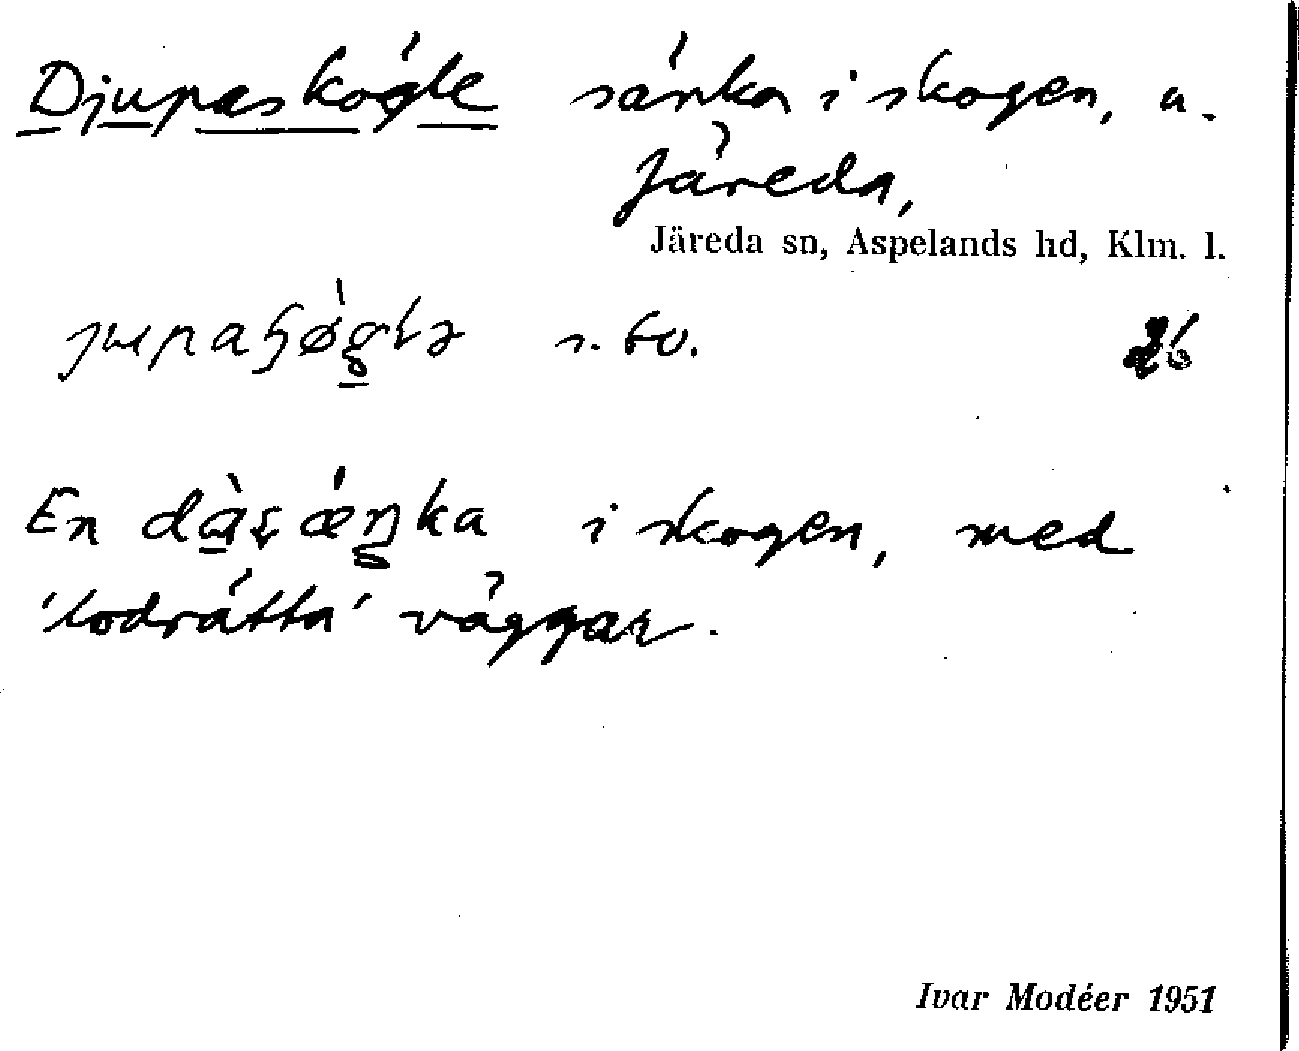 Djupaskögle sänka i skogen, u.
Järeda,
Järeda sn, Aspelands hd, Klm. l.
s. bo. 26
En i skogen, med
'lodrätta' väggar.
Ivar Modéer 1951